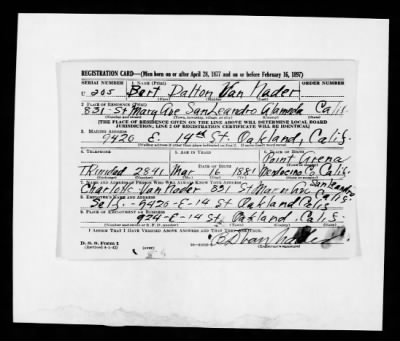 REGISTRATION CARD—(Men born on or after April 28, 1877 and on or before February 16, 1897)
SERIAL NUMBER 1. NAME (Print) ORDER NUMBER
U 205 Bert Dalton Van Nader
2. PLACE OF RESIDENCE (Print)
831 - St Mary Ave San Leandro Alameda Calif
[THE PLACE OF RESIDENCE GIVEN ON THE LINE ABOVE WILL DETERMINE LOCAL BOARD
JURISDICTION; LINE 2 OF REGISTRATION CERTIFICATE WILL BE IDENTICAL]
3. MAILING ADDRESS
9420 E. 14th St. Oakland. Calif.
4. TELEPHONE 5. AGE IN YEARS 6. PLACE OF BIRTH
Point Arena
DATE OF BIRTH
Trinidad 2841 Mar 16 1881 Mendocino Co. Calif.
7. NAME AND ADDRESS OF PERSON WHO WILL ALWAYS KNOW YOUR ADDRESS
San Leandro
Charlotte Van Nader 831 St Mary Ave Calif.
8. EMPLOYER'S NAME AND ADDRESS
Self. - 9420-E-14 St Oakland Calif
9. PLACE OF EMPLOYMENT OR BUSINESS
St. Oakland. Calif.
I AFFIRM THAT I HAVE VERIFIED ABOVE ANSWERS AND THAT THEY ARE TRUE.
D. S. S. Form 1
(Revised 4-1-42) (over)
B D Van Nader
(Registrant's signature)